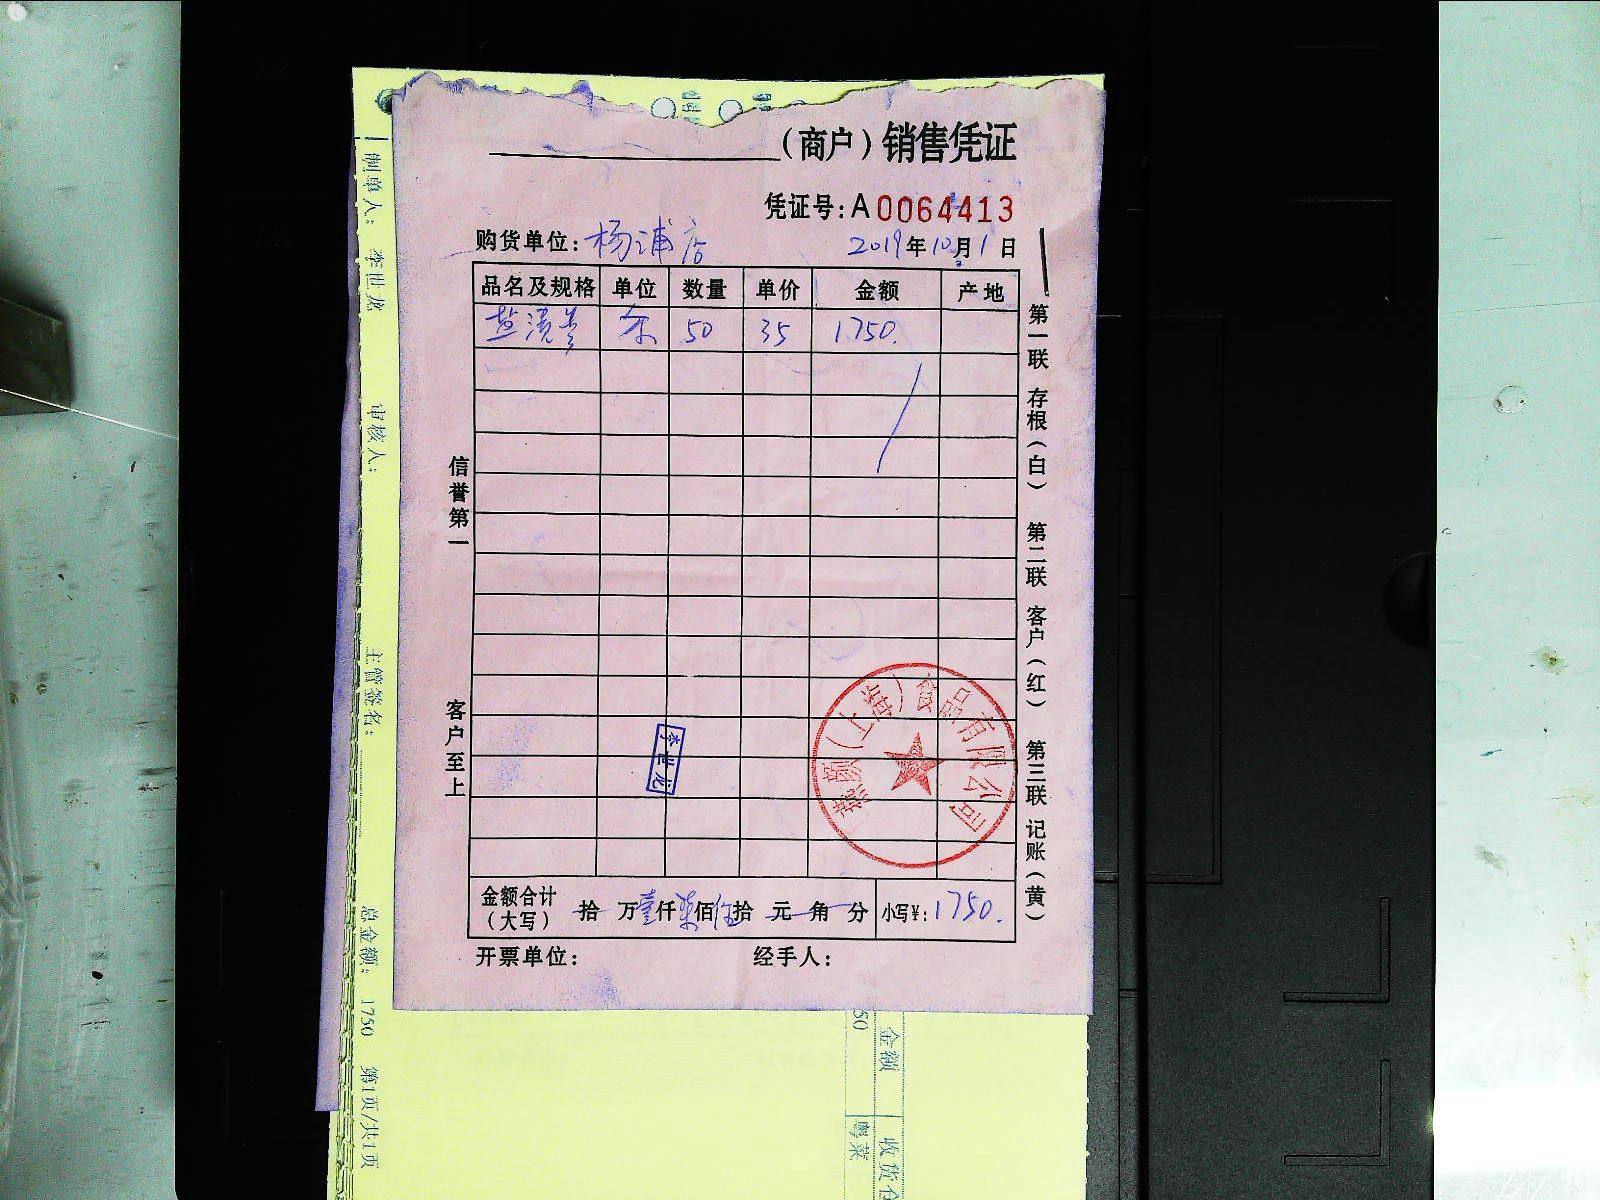 （商户）销售凭证
凭证号：A 0064413
购货单位：杨浦店 2019年10月1日
品名及规格 单位 数量 单价 金额 产地
条 50 35 1750.
信誉第一
客户至上
第一联 存根（白） 第二联 客户（红） 第三联 记账（黄）
李世龙
（上海）食品有限公司
金额合计（大写） 拾 万壹仟柒佰伍拾 元 角 分 小写¥：1750.
开票单位： 经手人：
制单人： 李世龙 审核人： 主管签名： 总金额： 1750 第1页/共1页
金额 收货
50 粤菜